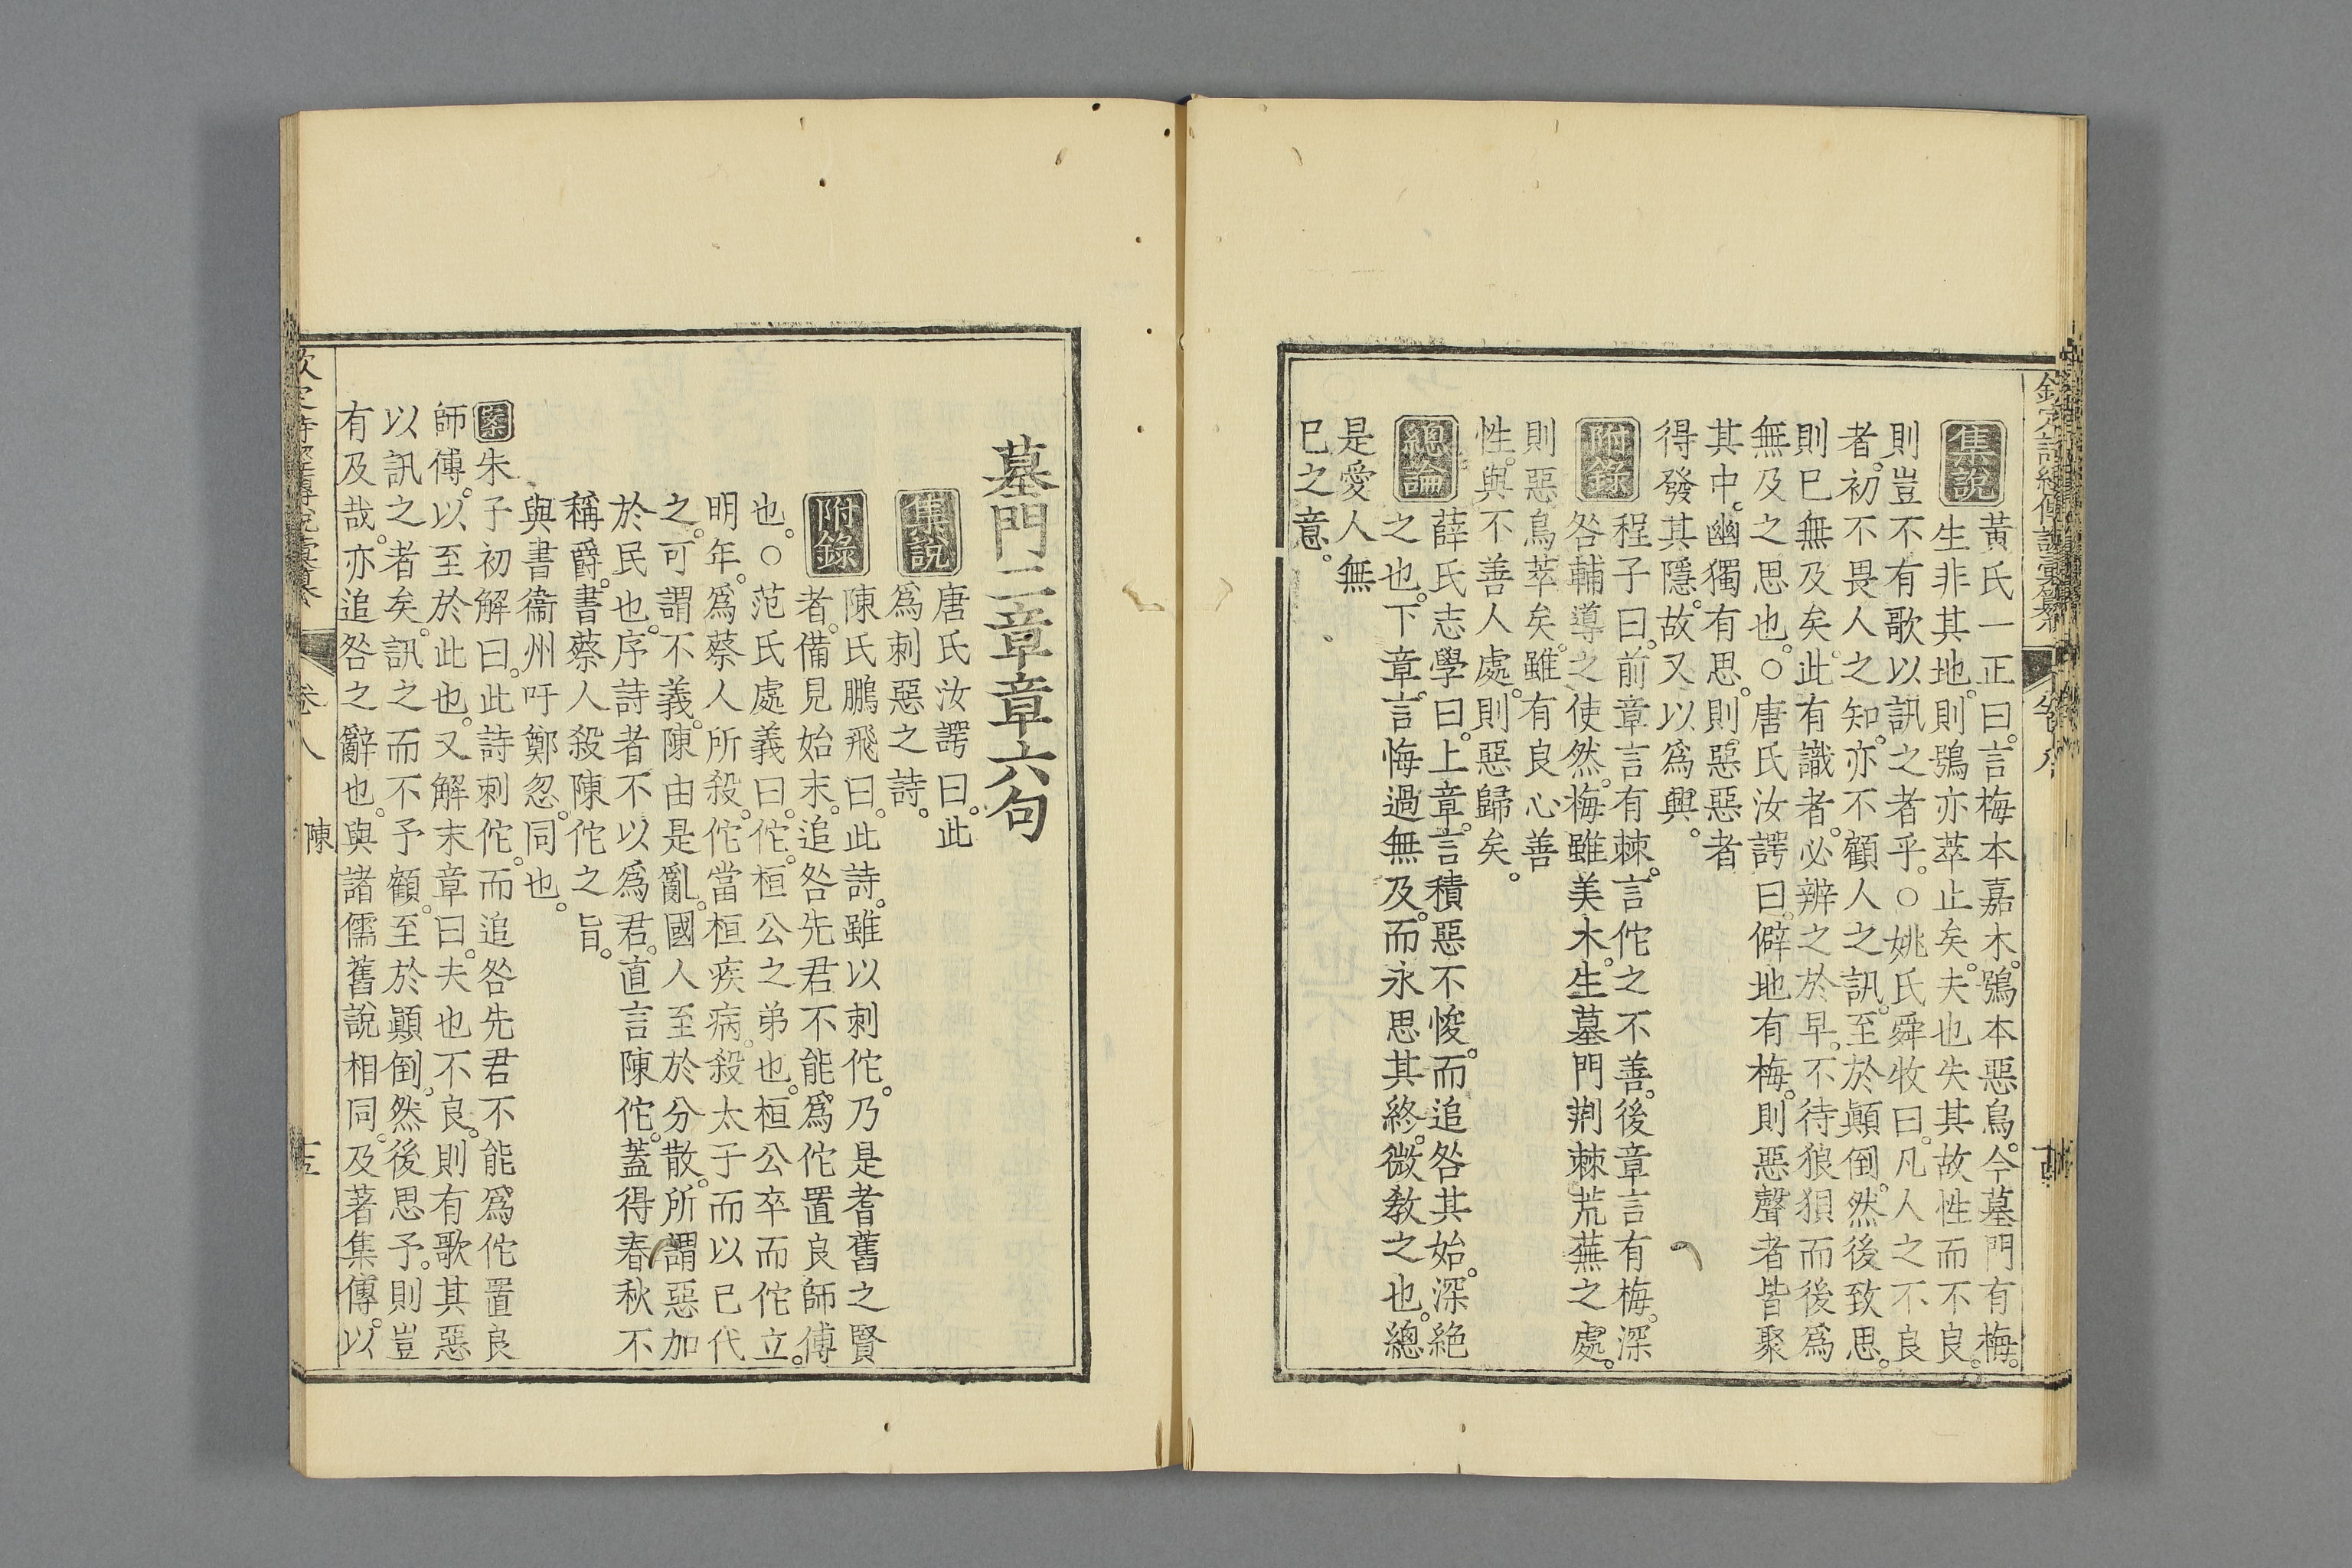 欽定詩經傳說彙纂 卷八
集說 黃氏一正曰。言梅本嘉木。鴞本惡鳥。今墓門有梅。
生非其地。則鴞亦萃止矣。夫也失其故性而不良。
則豈不有歌以訊之者乎。○姚氏舜牧曰。凡人之不良
者。初不畏人之知。亦不顧人之訊。至於顚倒。然後致思。
則已無及矣。此有識者。必辨之於早。不待狼狽而後爲
無及之思也。○唐氏汝諤曰。僻地有梅。則惡聲者皆聚
其中。幽獨有思。則惡惡者
得發其隱。故又以爲興。
附錄 程子曰。前章言有棘。言佗之不善。後章言有梅。深
咎輔導之使然。梅雖美木。生墓門荆棘荒蕪之處。
則惡鳥萃矣。雖有良心善
性。與不善人處。則惡歸矣。
總論 薛氏志學曰。上章。言積惡不悛。而追咎其始。深絶
之也。下章。言悔過無及。而永思其終。微敎之也。總
是愛人無
已之意。
墓門二章章六句
集說 唐氏汝諤曰。此
爲刺惡之詩。
附錄 陳氏鵬飛曰。此詩。雖以刺佗。乃是耆舊之賢
者。備見始末。追咎先君不能爲佗置良師傅
也。○范氏處義曰。佗。桓公之弟也。桓公卒而佗立。
明年。爲蔡人所殺。佗當桓疾病。殺太子而以已代
之。可謂不義。陳由是亂。國人至於分散。所謂惡加
於民也。序詩者不以爲君。直言陳佗。蓋得春秋不
稱爵。書蔡人殺陳佗之旨。
與書衞州吁鄭忽。同也。
案 朱子初解曰。此詩刺佗。而追咎先君不能爲佗置良
師傅。以至於此也。又解末章曰。夫也不良。則有歌其惡
以訊之者矣。訊之而不予顧。至於顚倒。然後思予。則豈
有及哉。亦追咎之辭也。與諸儒舊說相同。及著集傳。以
卷八 陳